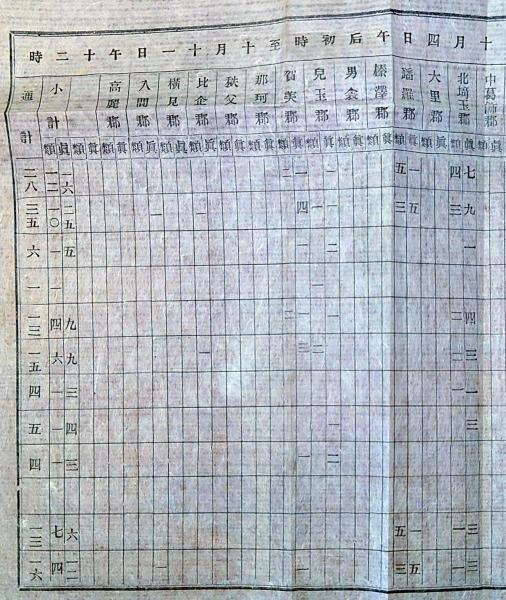 十月四日午后初時至十月十一日午十二時
中葛飾郡
北埼玉郡
大里郡
幡羅郡
榛澤郡
男衾郡
兒玉郡
賀美郡
那珂郡
秩父郡
比企郡
橫見郡
入間郡
高麗郡
小計
通計
眞類 眞類 眞類 眞類 眞類 眞類 眞類 眞類 眞類 眞類 眞類 眞類 眞類 眞類 眞類
七 四 一 五 一 二 一六 一二 二八
九 三 五 三 一 一 四 一 一 二五 一〇 三五
一 二 一 五 一 六
一 一 一
四 二 一 一 二 九 四 一三
三 二 二 三 一 九 六 一五
一 一 三 一 四
三 一 四 一 五
二 一 三 一 四
三 一 一 五 六 七 一三
三 一 五 三 一 一 一 一二 四 一六